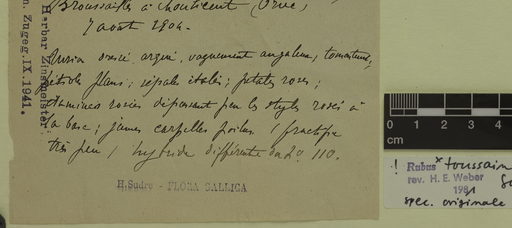 Broussailles à Montlicent (Orne,
7 août 1904.
Turion dressé, argui, vaguement anguleux, tomenteux,
pétiole plans; sépales étalés; pétales roses;
étamines rosées dépassant peu les styles rosés à
la base; jeunes carpelles poilus / fructifie
très peu / hybride différente du n° 110.
H. Sudre - FLORA GALLICA
Herbar Zinsmeister
Zugeg. IX. 1941.
0 1
cm
! Rubus × toussain
rev. H. E. Weber
1981
spec. originale